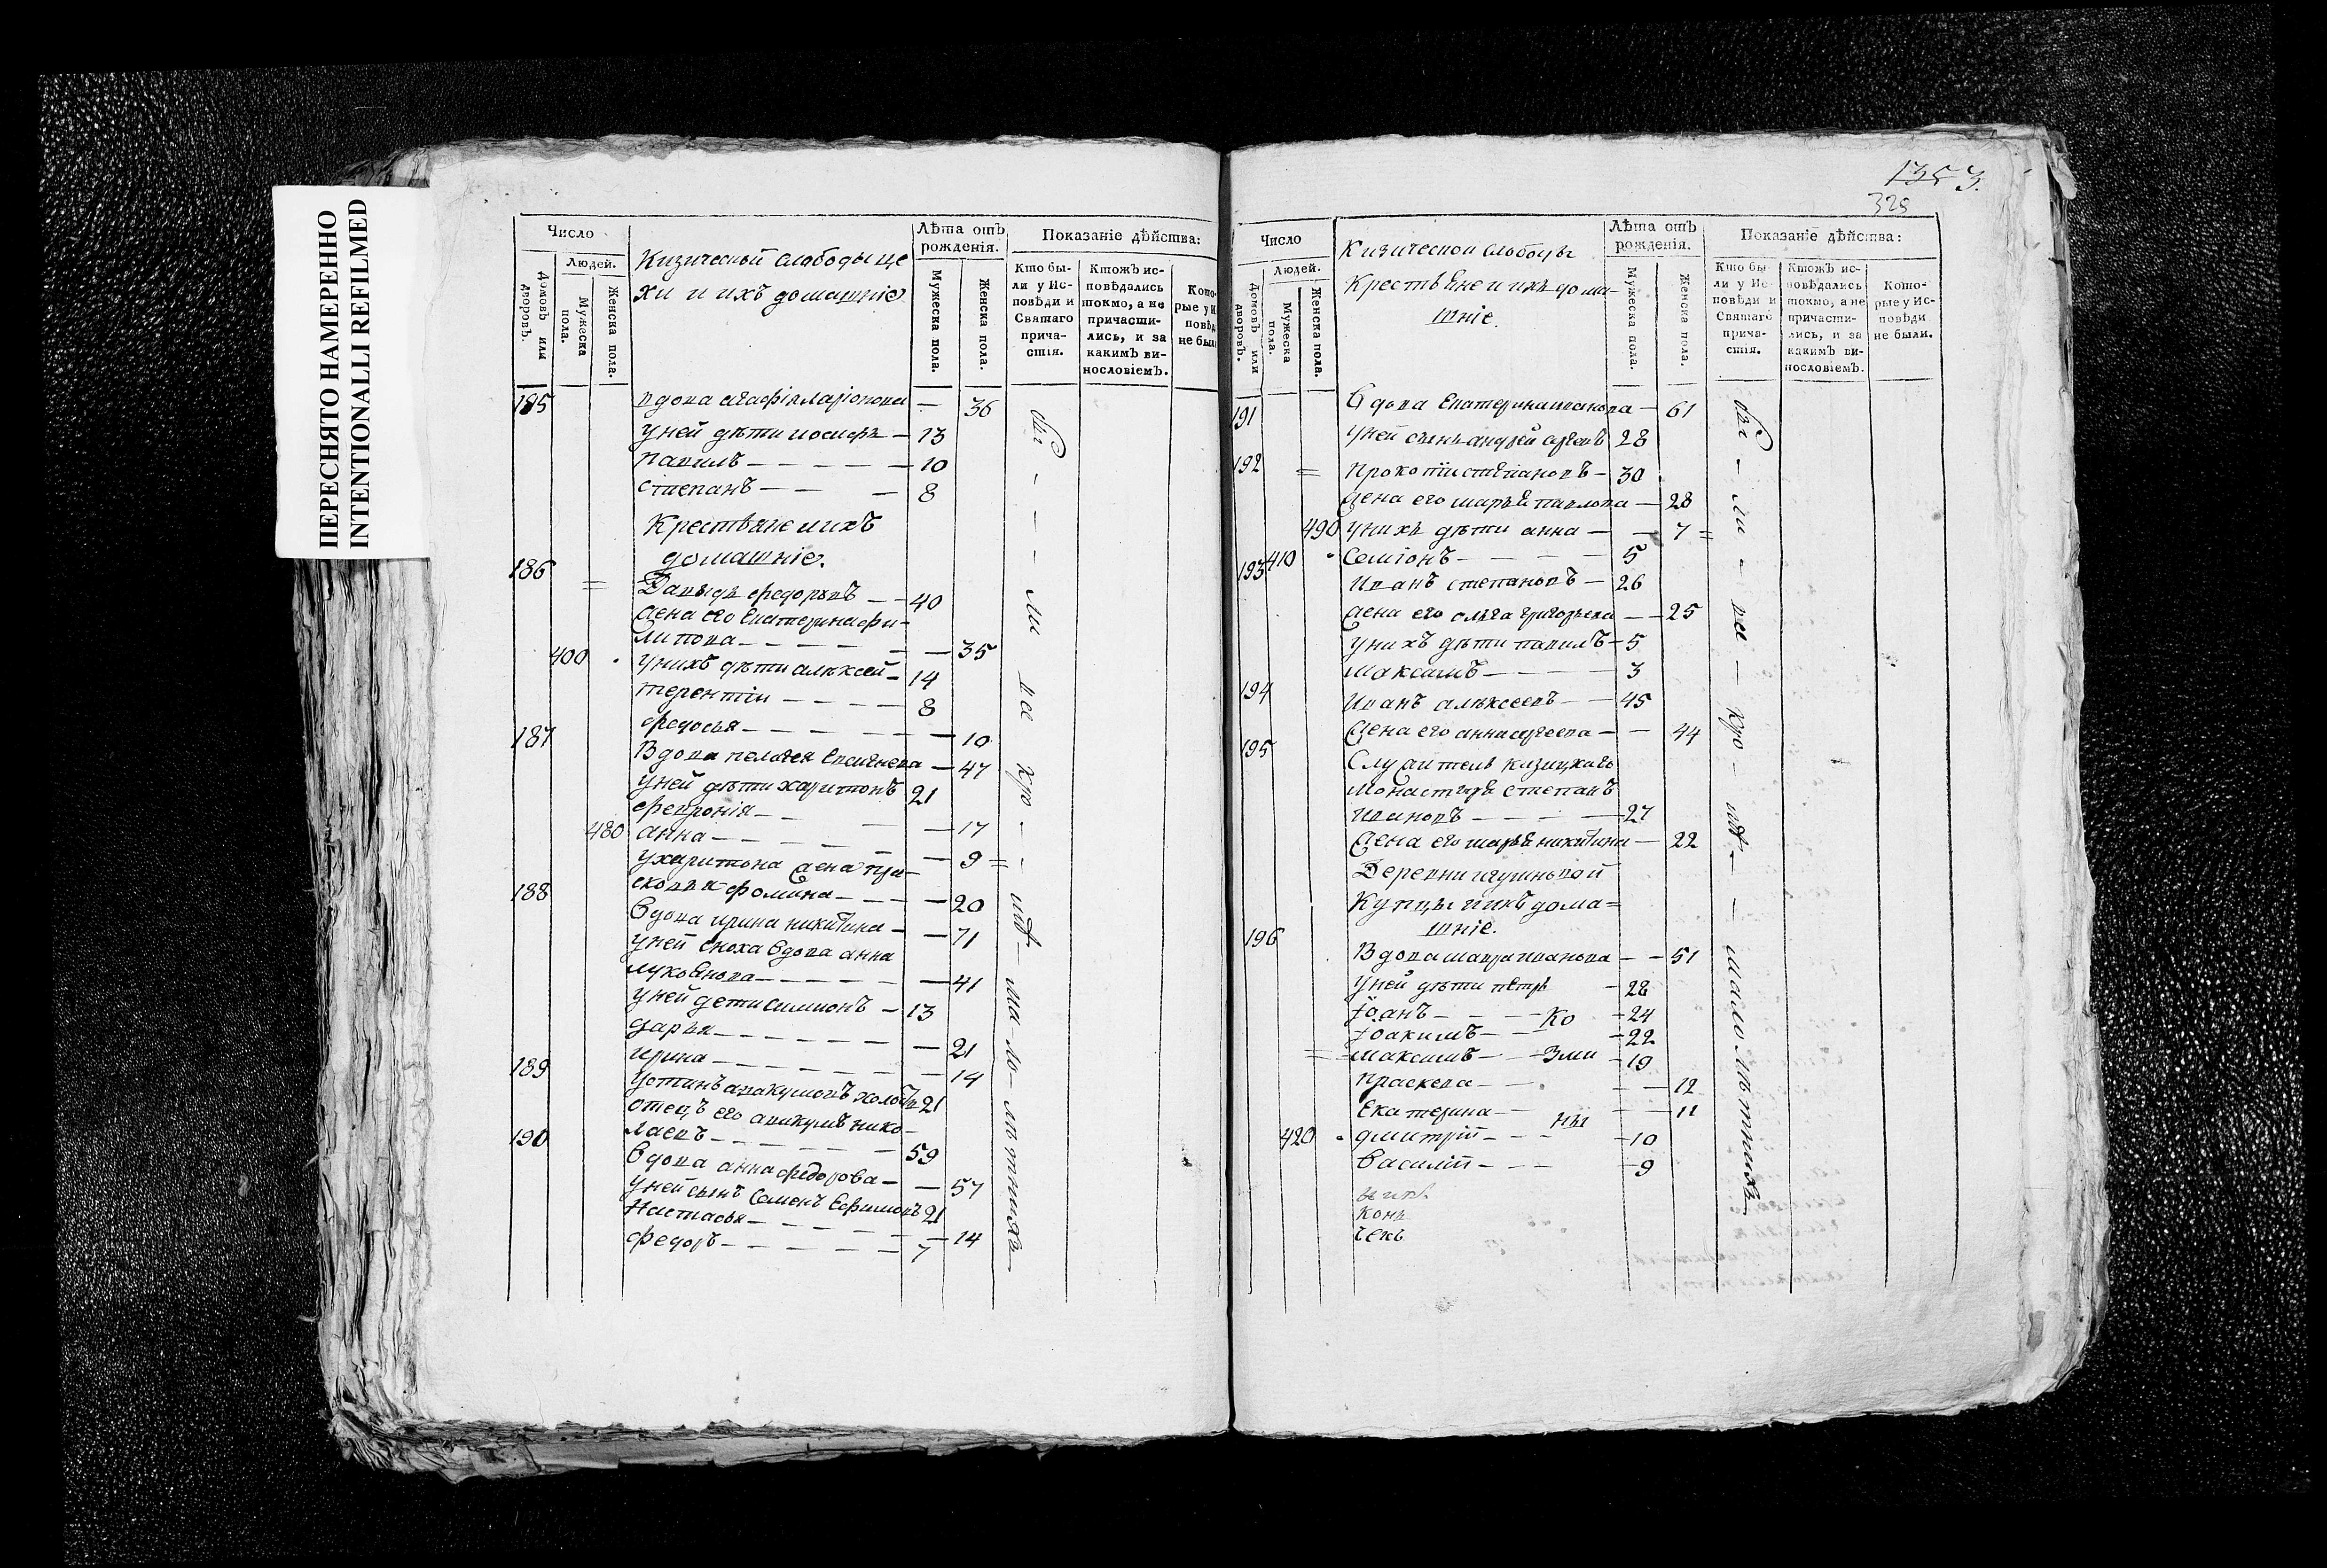 ПЕРЕСНЯТО НАМЕРЕННО
INTENTIONALLI REFILMED
Число
Людей.
Домовъ или дворовъ.
Мужеска пола.
Женска пола.
Кизической слободы це
хи и ихъ домашніе
Лѣта отъ рожденія.
Мужеска пола.
Женска пола.
Показаніе дѣйства:
Кто бы-
ли у Ис-
повѣди и
Святаго
прича-
стія.
Ктожъ ис-
повѣдались
токмо, а не
причасти-
лись, и за
какимъ ви-
нословіемъ.
185 вдова агафія ларіонова — 36
у ней дѣти иосифъ — 13
павилъ — 10
степанъ — 8
Крестьяне и ихъ
домашніе.
186 = Давыдъ федоровъ — 40
жена его Екатерина фи-
липова — 35
400 у нихъ дѣти алѣксей — 14
терентіи — 8
федосья — 10
187 Вдова пелагея Евсигнева — 47
у ней дѣти харитонъ 21
феврония — 17
480 анна — 9 =
у харитона жена пра-
сковья фомина — 20
188 вдова ирина никитина — 71
у ней сноха вдова анна
лукоянова — 41
у ней дети симионъ — 13
дарья — 21
ирина — 14
189 устинъ авакумовъ холостъ 21
отецъ его авакумъ нико-
лаевъ — 59
190 вдова анна федорова — 57
у ней сынъ семенъ Ефимовъ 21
Настасья — 14
федоръ — 7
бы - - - ли все кро - - мѣ - ма - ло - лѣтнихъ
1353.
329
Число
Людей.
Домовъ или дворовъ.
Мужеска пола.
Женска пола.
Кизической слободы
Крестьяне и ихъ дома-
шніе.
Лѣта отъ рожденія.
Мужеска пола.
Женска пола.
Показаніе дѣйства:
Кто бы-
ли у Ис-
повѣди и
Святаго
прича-
стія.
Ктожъ ис-
повѣдались
токмо, а не
причасти-
лись, и за
какимъ ви-
нословіемъ.
Кото-
рые у Ис-
повѣди
не были.
191 вдова Екатерина иванова — 61
у ней сынъ андрей 28
192 = прокопіи степановъ — 30
жена его марья павлова — 28
490 у нихъ дѣти анна — 7 =
410 Семіонъ — 5
193 Иванъ степановъ — 26
жена его олга григорьева — 25
у нихъ дѣти павилъ — 5
максимъ — 3
194 Иванъ алѣксеевъ — 45
жена его анна — 44
195 Служитель кизицкаго
монастыря степанъ
ивановъ — 27
жена его марья никитина — 22
Деревни игушновой
Купцы и ихъ дома=
шніе.
196 Вдова мавра иванова — 51
у ней дѣти петръ — 28
іоанъ — Ко — 24
іоакимъ — 22
= максимъ — зми — 19
праскева — 12
Екатерина — 11
420 димитрій — ны — 10
василій — 9
конъ
бы - ли - все - кро - мѣ - - малолѣтнихъ